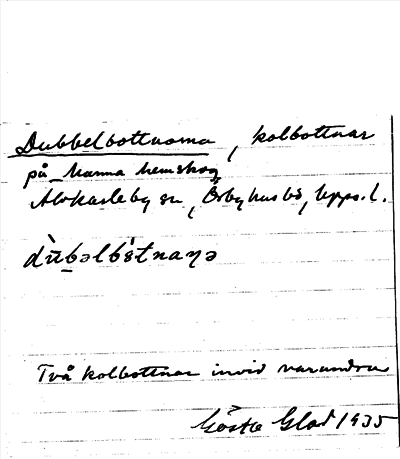 Dubbelbottnarna, kolbottnar
på Marma hemskog
Älvkarleby sn, Örbyhus hd, Upps. l.
dùbəlbòtnaɳə
Två kolbottnar invid varandra
Gösta Glad 1935